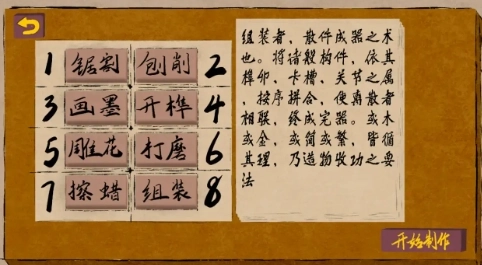 1 锯割 刨削 2
3 画墨 开榫 4
5 雕花 打磨 6
7 擦蜡 组装 8
组装者，散件成器之术
也。将诸般构件，依其
榫卯、卡槽、关节之属
，按序拼合，使离散者
相联，终成完器。或木
或金，或简或繁，皆循
其理，乃造物收功之要
法
开始制作